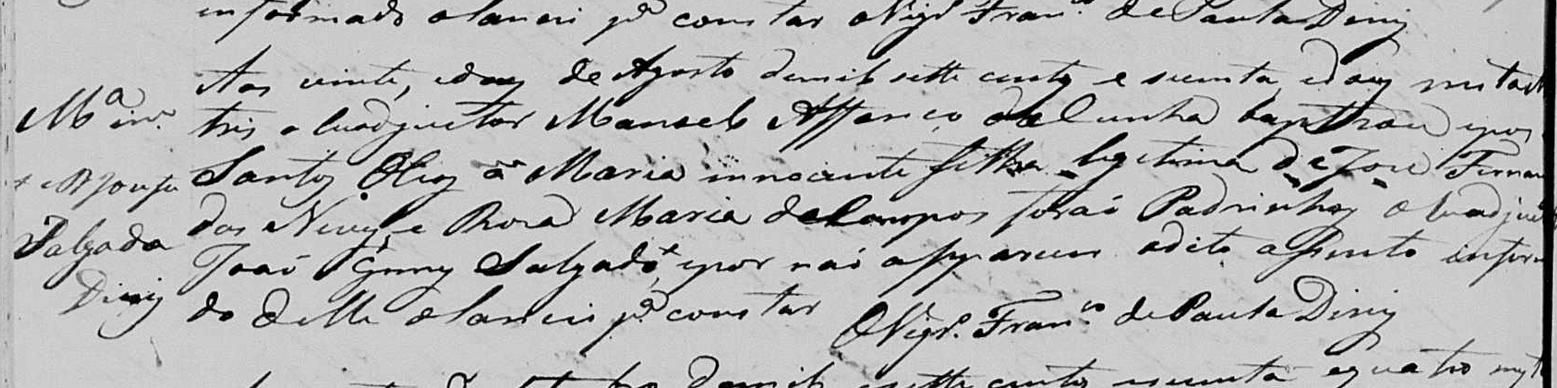 informado o lancei p.ª constar O Vigr.º Fran.co de Paula Diniz
Aos vinte, e dous de Agosto de mil sette centos e secenta, e dous nesta
M.ª in.e
tris o Coadjuctor Manoel Affonço da Cunha baptizou e pos
Santos Oleos á Maria innocente filha legitima de Joze Fernan
das Neves, e Rosa Maria de Campos forão Padrinhos o Coadju
Salgada
João Gomes Salgado, e por não apparecer o dito assento infor
Diniz
do delle o lancei p.ª constar O Vigr.º Fran.co de Paula Diniz
de mil e sette centos e secenta e quatro